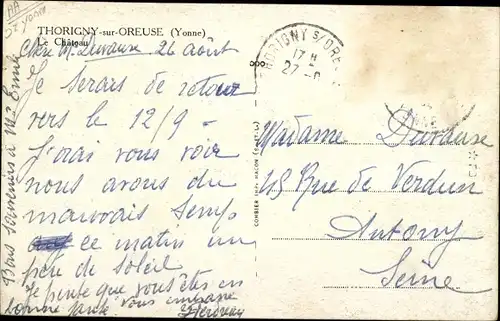 AA
St Yonne
THORIGNY-sur-OREUSE (Yonne)
Le Château
Chère Me Duvause 26 août
Je serais de retour
vers le 12/9 -
J'irai vous voir
nous avons du
mauvais temps
ce matin un
peu de soleil
Je pense que vous êtes en
bonne santé vous embrasse
Bons souvenirs à Mr
THORIGNY S/ORE
17 H
27 - 8
YONNE
COMBIER IMP. MACON (S.-et-L.)
Madame Duvause
215 Rue de Verdun
Antony
Seine